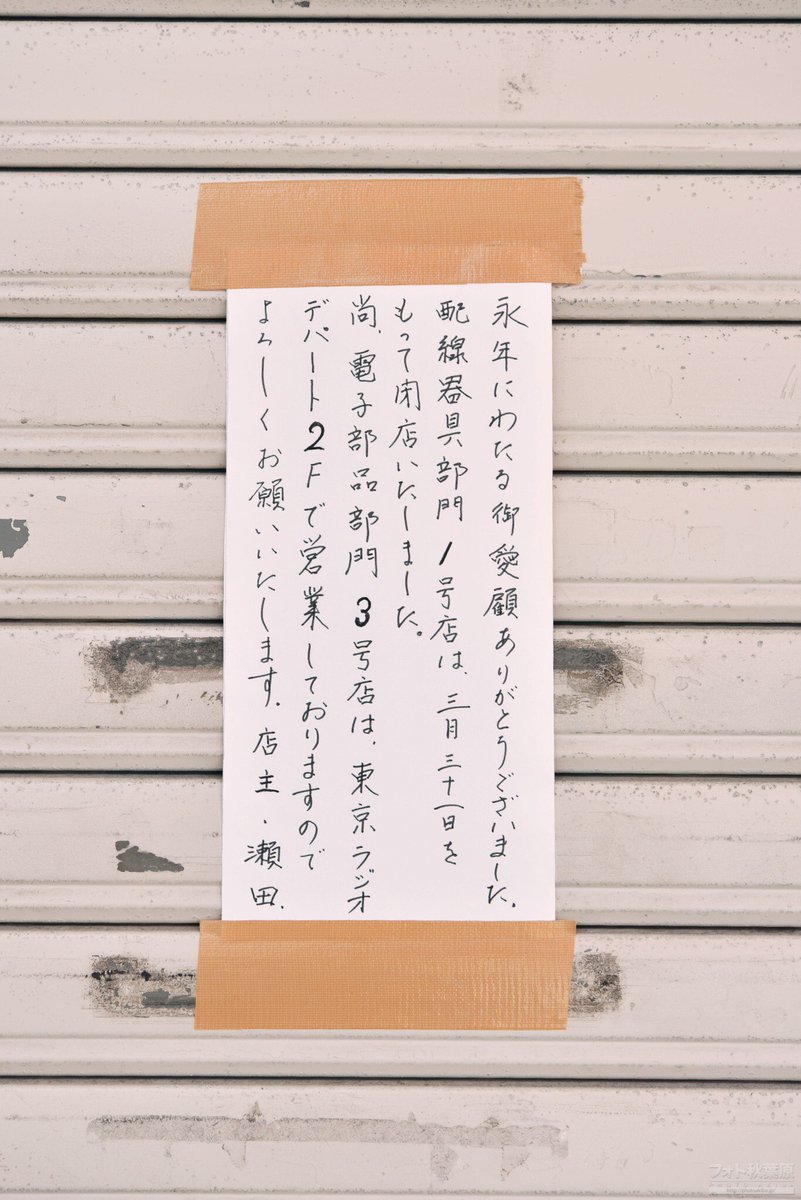 永年にわたる御愛顧ありがとうございました。
配線器具部門1号店は、三月三十一日を
もって閉店いたしました。
尚、電子部品部門3号店は、東京ラジオ
デパート2Fで営業しておりますので
よろしくお願いいたします。店主・瀬田。
フォト秋葉原